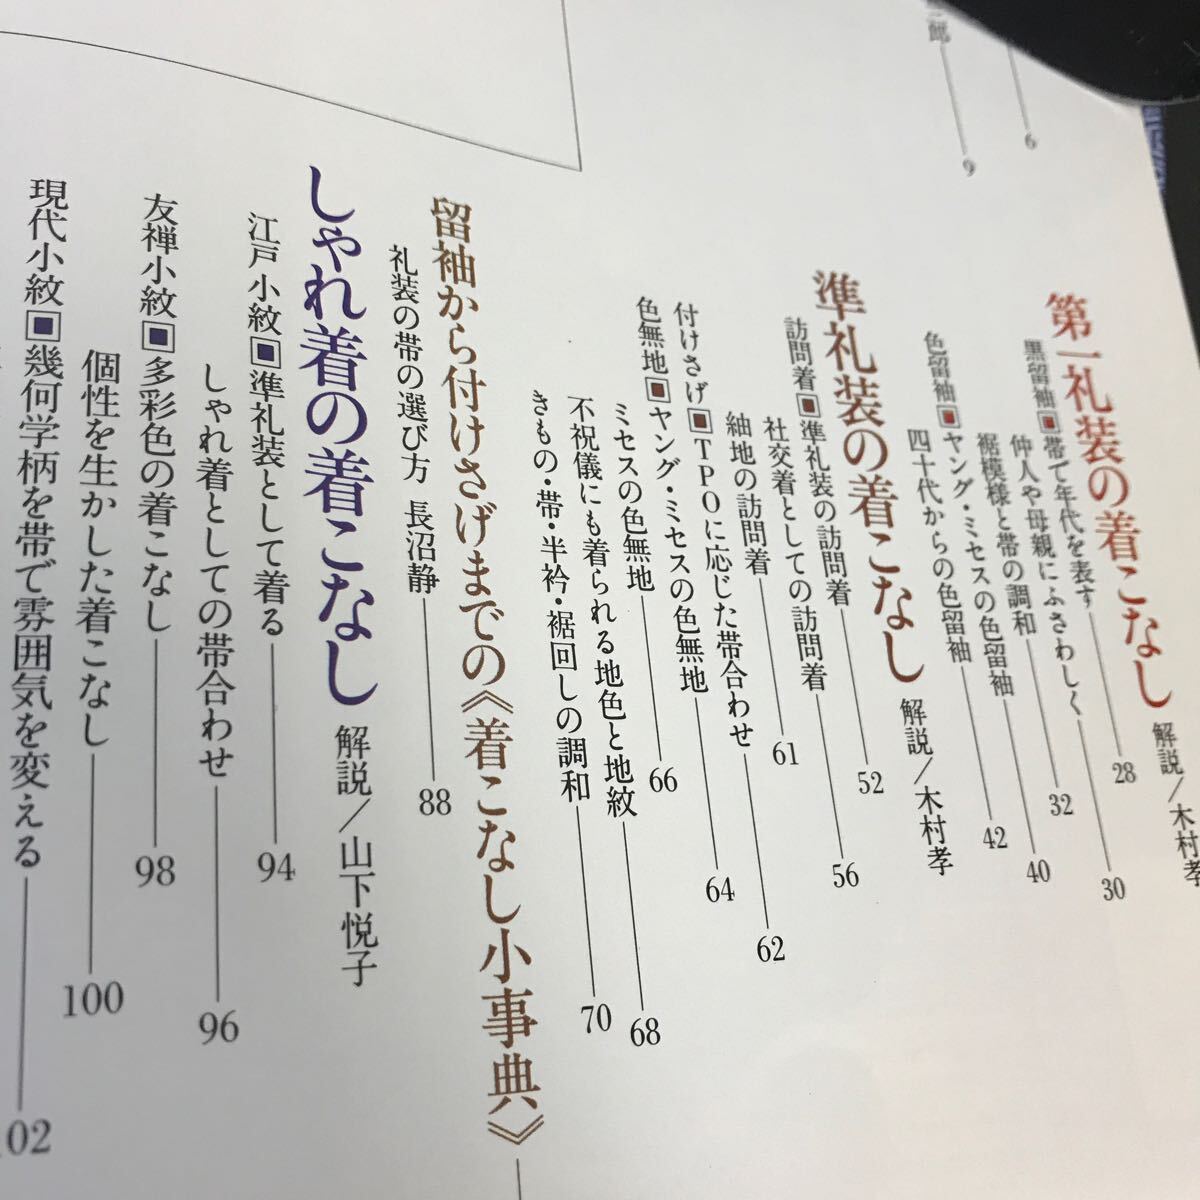 6
郎 9
第一礼装の着こなし 解説/木村孝
黒留袖■帯で年代を表す 28
仲人や母親にふさわしく 30
裾模様と帯の調和 32
色留袖■ヤング・ミセスの色留袖 40
四十代からの色留袖 42
準礼装の着こなし 解説/木村孝
訪問着■準礼装の訪問着 52
社交着としての訪問着 56
紬地の訪問着 61
付けさげ■TPOに応じた帯合わせ 62
色無地■ヤング・ミセスの色無地 64
ミセスの色無地 66
不祝儀にも着られる地色と地紋 68
きもの・帯・半衿・裾回しの調和 70
留袖から付けさげまでの《着こなし小事典》
礼装の帯の選び方 長沼静 88
しゃれ着の着こなし 解説/山下悦子
江戸小紋■準礼装として着る 94
しゃれ着としての帯合わせ 96
友禅小紋■多彩色の着こなし 98
個性を生かした着こなし 100
現代小紋■幾何学柄を帯で雰囲気を変える 102